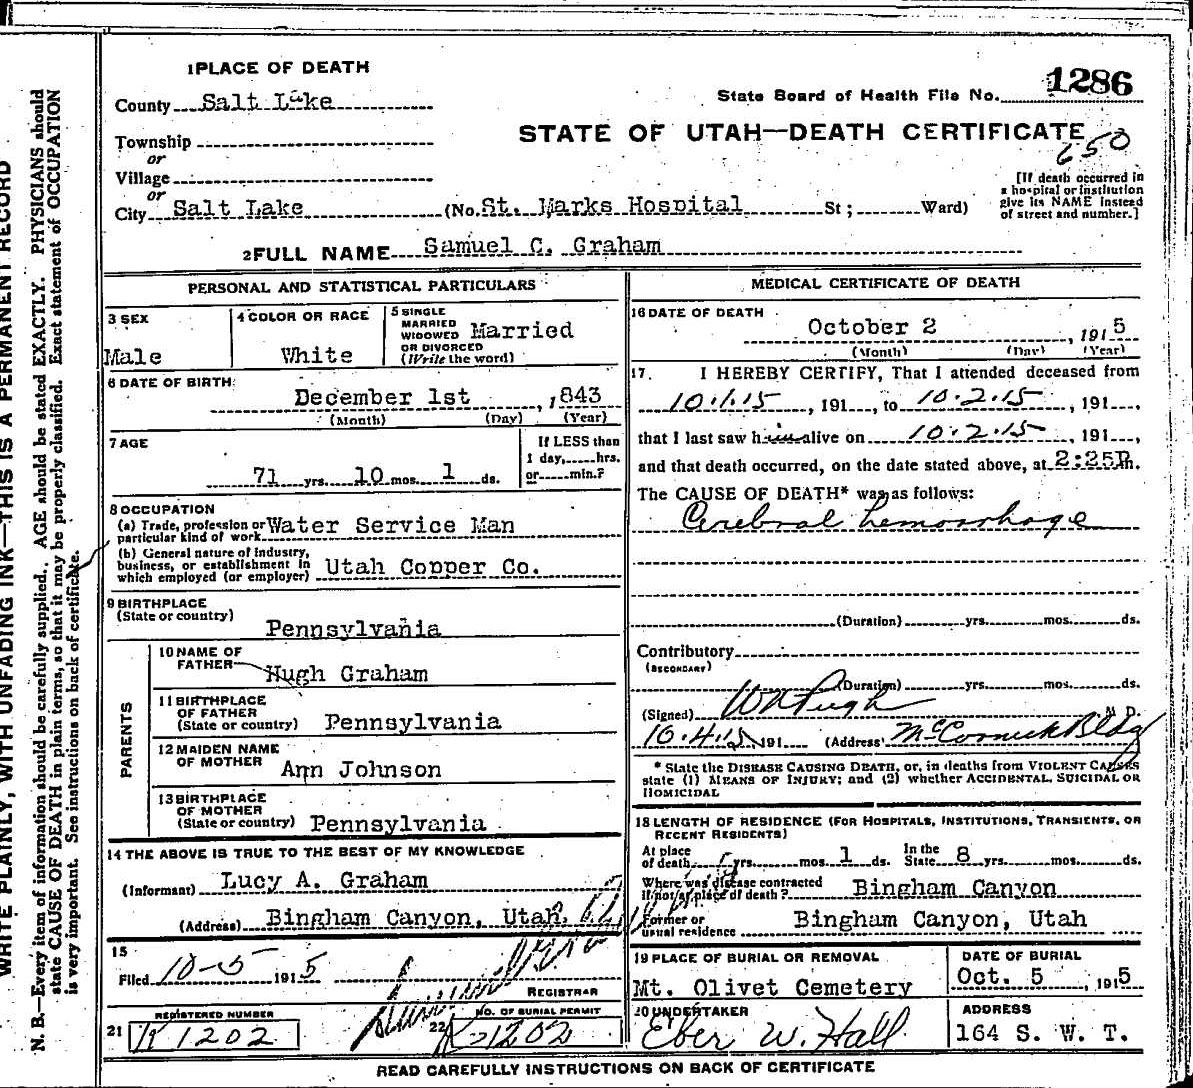 WRITE PLAINLY, WITH UNFADING INK—THIS IS A PERMANENT RECORD
N. B.—Every item of information should be carefully supplied. AGE should be stated EXACTLY. PHYSICIANS should
state CAUSE OF DEATH in plain terms, so that it may be properly classified. Exact statement of OCCUPATION
is very important. See instructions on back of certificate.
1 PLACE OF DEATH
County Salt Lake
Township
or
Village
or
City Salt Lake (No. St. Marks Hospital St; Ward)
State Board of Health File No. 1286
STATE OF UTAH—DEATH CERTIFICATE
650
[If death occurred in
a hospital or institution
give its NAME instead
of street and number.]
2 FULL NAME Samuel C. Graham
PERSONAL AND STATISTICAL PARTICULARS
3 SEX
Male
4 COLOR OR RACE
White
5 SINGLE
MARRIED
WIDOWED
OR DIVORCED
(Write the word)
Married
6 DATE OF BIRTH
December 1st, 1843
(Month) (Day) (Year)
7 AGE
71 yrs. 10 mos. 1 ds.
If LESS than
1 day, hrs.
or min.?
8 OCCUPATION
(a) Trade, profession or
particular kind of work Water Service Man
(b) General nature of industry,
business, or establishment in
which employed (or employer) Utah Copper Co.
9 BIRTHPLACE
(State or country)
Pennsylvania
PARENTS
10 NAME OF
FATHER Hugh Graham
11 BIRTHPLACE
OF FATHER
(State or country) Pennsylvania
12 MAIDEN NAME
OF MOTHER Ann Johnson
13 BIRTHPLACE
OF MOTHER
(State or country) Pennsylvania
14 THE ABOVE IS TRUE TO THE BEST OF MY KNOWLEDGE
(Informant) Lucy A. Graham
(Address) Bingham Canyon, Utah.
15
Filed 10-5 1915
REGISTRAR
21 REGISTERED NUMBER
1202
22 NO. OF BURIAL PERMIT
1202
MEDICAL CERTIFICATE OF DEATH
16 DATE OF DEATH
October 2, 1915
(Month) (Day) (Year)
17. I HEREBY CERTIFY, That I attended deceased from
10.1.15, 191 , to 10.2.15, 191 ,
that I last saw him alive on 10.2.15, 191 ,
and that death occurred, on the date stated above, at 2:25P.m.
The CAUSE OF DEATH* was as follows:
Cerebral hemorrhage
(Duration) yrs. mos. ds.
Contributory
(SECONDARY)
(Duration) yrs. mos. ds.
(Signed) Pugh M. D.
10.4.15, 191 (Address) McCornick Bldg
* State the DISEASE CAUSING DEATH, or, in deaths from VIOLENT CAUSES
state (1) MEANS OF INJURY; and (2) whether ACCIDENTAL, SUICIDAL OR
HOMICIDAL
18 LENGTH OF RESIDENCE (FOR HOSPITALS, INSTITUTIONS, TRANSIENTS, OR
RECENT RESIDENTS)
At place
of death yrs. mos. 1 ds. In the
State 8 yrs. mos. ds.
Where was disease contracted
if not at place of death? Bingham Canyon
Former or
usual residence Bingham Canyon, Utah
19 PLACE OF BURIAL OR REMOVAL
Mt. Olivet Cemetery
DATE OF BURIAL
Oct. 5, 1915
20 UNDERTAKER
Eber W. Hall
ADDRESS
164 S. W. T.
READ CAREFULLY INSTRUCTIONS ON BACK OF CERTIFICATE